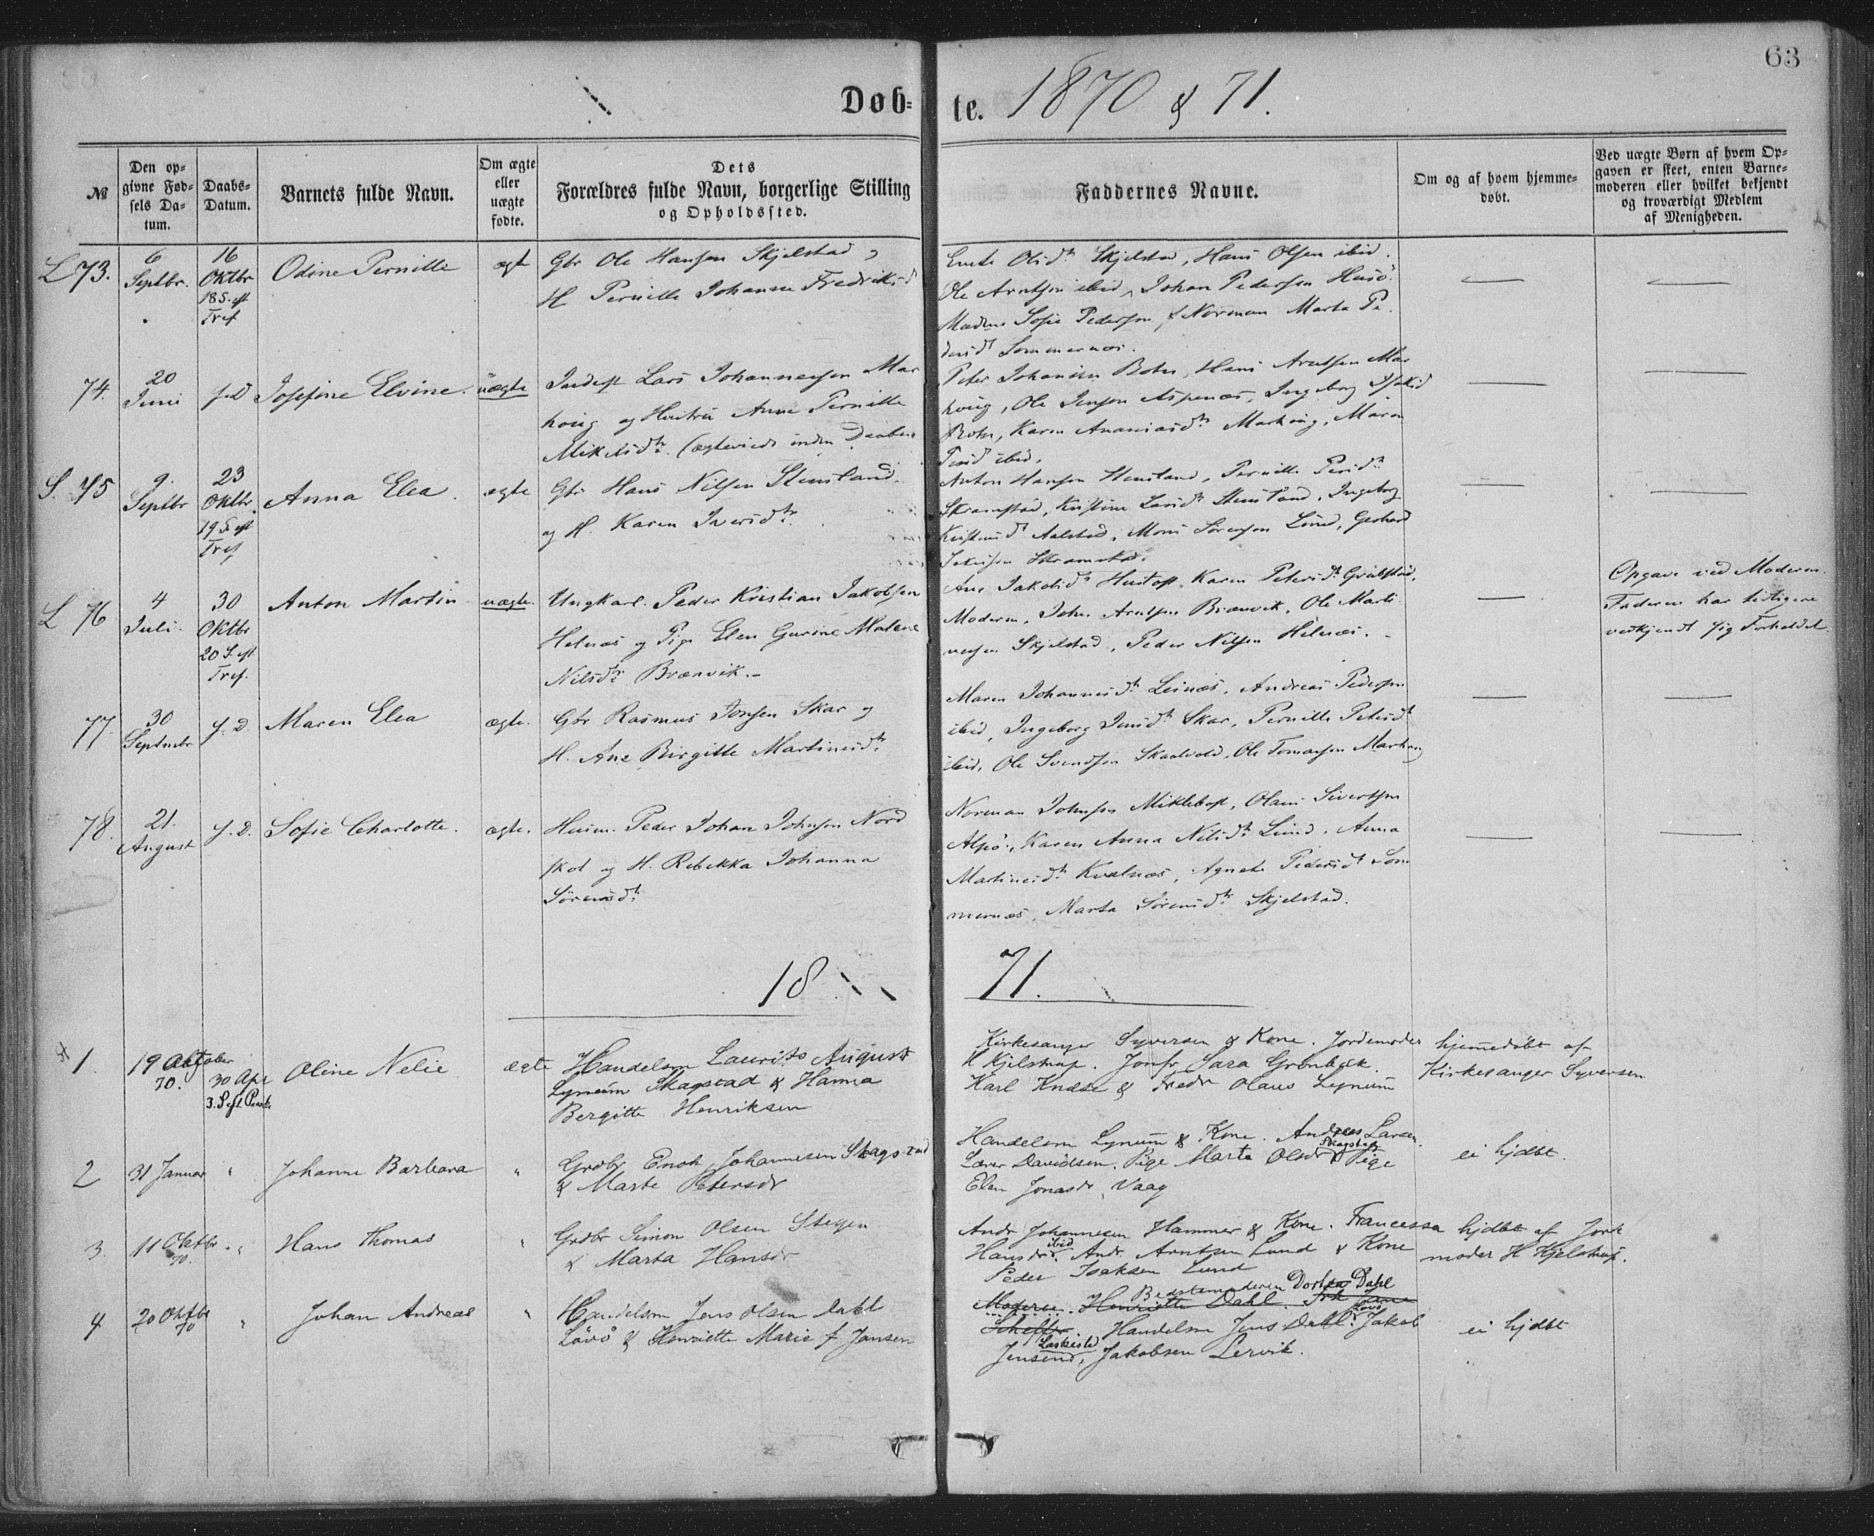 63
Døb= te. 1870 & 71.
№
Den op-
givne Fød-
sels Da-
tum.
Daabs-
Datum.
Barnets fulde Navn.
Om ægte
eller
uægte
fødte.
Dets
Forældres fulde Navn, borgerlige Stilling
og Opholdssted.
Faddernes Navne.
Om og af hvem hjemme-
døbt.
Ved uægte Børn af hvem Op-
gaven er skeet, enten Barne-
moderen eller hvilket bekjendt
og troværdigt Medlem
af Menigheden.
L 73.
6
Septbr.
16
Oktbr
18 S. eft
Tref
Odine Pernille
ægt
Gbr Ole Hansen Skjelstad
H Pernille Johanne Fredriksd
Olsdtr Skjelstad, Hans Olsen ibid.
Ole Arntsen ibid, Johan Pedersen Husø
Madme Sofie Pedersen, Norman Marta Pe
dersdt Sommernæs.
74.
20
Juni
s. d
Josefine Elvine.
uægte
Inderst Lars Johannessen Mar
houg og Hustru Anne Pernille
Mikelsdtr. (ægteviede inden Daaben
Peter Johansen Botn, Hans Arntsen Mar
houg, Ole Jensen Aspenæs, Ingeborg
Botn, Karen Ananiasdtr Marhoug, Maren
Persd ibid.
S. 75
9.
Septbr
23
Oktbr.
19 S. eft
Tref
Anna Elea.
ægte
Gbr Hans Nilsen Stensland.
og H. Karen Iversdtr.
Anton Hansen Stensland, Pernille Persdtr
Skramstad, Kristine Larsdtr Stensland, Ingeborg
Aalstad, Mons Sørensen Lund, Gerhard
Skramstad.
L 76
4
Juli.
30
Oktbr
20 S. eft
Tref.
Anton Martin
uægte.
Ungkarl. Peder Kristian Jakobsen
Helnæs og Pige Elen Gurine Malene
Nilsdtr Brænvik.-
Ane Jakobsdtr, Karen Petersdtr
Moderen, Johs. Arntsen Brænvik, Ole Marti
nusen Skjelstad, Peder Nilsen Helnæs.-
Opgave ved Moderen.
Faderen har tidligere
vedkjendt sig Forholdet.
77.
30
Septmbr
s. d.
Maren Elea
ægte.
Gbr Rasmus Jonsen Skar og
H. Ane Birgitte Martinusdtr
Maren Johannesdtr Leinæs, Andreas Pedersen
ibid, Ingeborg Jensdtr Skar, Pernille Petersdtr
ibid, Ole Svendsen Skaalvold, Ole Tomassen Marhaug
78.
21.
August
s. d.
Sofie Charlotte.
ægte.
Husm. Peder Johan Johnsen Nord
skot og H. Rebekka Johanna
Sørensdtr
Norman Johnsen Miklebost, Olaus Sivertsen
Alpø, Karen Anna Nilsdtr Lund. Anna
Martinusdtr Kvalnæs, Agnete Pedersdtr Som
mernæs, Marta Sørensdtr Skjelstad.
18 71.
1.
19 Oktober
70.
30 Apr
3. S. eft Paaske
Oline Nelie
ægte
Handelsm Laurits August
Lyneum Skagstad & Hanna
Bergitte Henriksen
Kirkesanger Syversen & Kone. Jordemoder
H Kjelstrup. Jomfr Sara Grønbeck.
Karl Knase & Fredr Olaus Lyneum
hjemmedøbt af
Kirkesanger Syversen
2
31 Januar
"
Johanne Barbara
"
Grdbr Enok Johannesen Skagstad
& Marte Petersdr
Handelsm Lyneum & Kone. Andreas Larsen.
Skagstad
Lærer Davidsen. Pige Marte Olsdr & Pige
Elen Jonasdr Vaag
ei hjdbt.
3.
11 Oktbr
70.
"
Hans Thomas
"
Grdbr Simon Olsen Stegen
& Marta Hansdr
Andr Johannesen Hammer & Kone. Francessa
ibid
Hansdr. Andr Arntsen Lund & Kone
Peder Isaksen Lund
hjdbt af Jord
moder H Kjelstrup.
4
20 Oktbr
70
"
Johan Andreas
"
Handelsm Jens Olsen Dahl
Løvø & Henriette Marie f Jansen
Bedstemoderen Dortea Dahl
Moderen. Henriette Dahl.
Løvø
Handelsm Jens Dahl. Jakob
Jensen, Jakobsen Lervik.
ei hjdbt